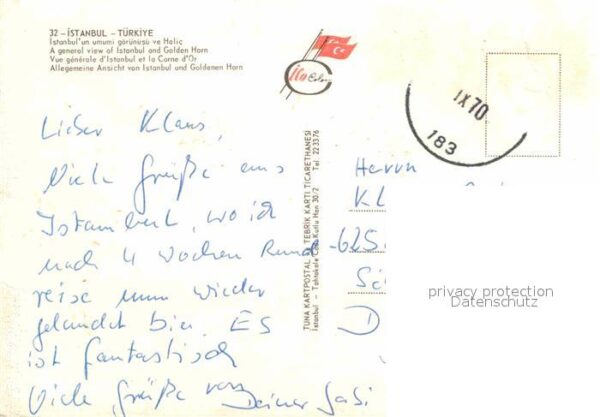 32 – İSTANBUL – TÜRKİYE
İstanbul'un umumi görünüşü ve Haliç
A general view of Istanbul and Golden Horn
Vue générale d'Istanbul et la Corne d'Or
Allgemeine Ansicht von Istanbul und Goldenen Horn
Color
IX 70
183
Lieber Klaus,
Viele Grüße aus
Istambul, wo ich
nach 4 Wochen Rund-
reise nun wieder
gelandet bin. ES
ist fantastisch
Viele Grüße von Deiner Gabi
TUNA KARTPOSTAL VE TEBRİK KARTI TİCARETHANESİ
İstanbul - Tahtakale Kutlu Han 30/2 Tel. 22 33 76
Herrn
KL
625
D
privacy protection
Datenschutz